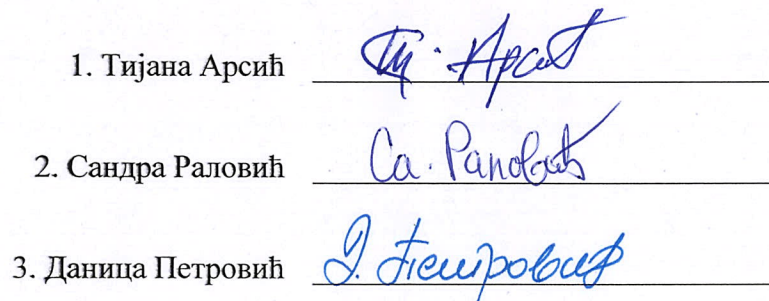 1. Тијана Арсић Тц. Арсић
2. Сандра Раловић Са. Раловић
3. Даница Петровић Д. Петровић